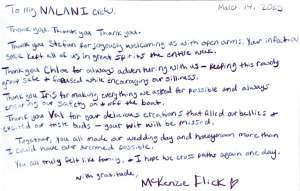 To my NALANI crew,
March 14, 2023
Thank you. Thank you. Thank you.
Thank you Stefan for joyously welcoming us with open arms. Your infectious
smile kept all of us in great spirits the entire week.
Thank you Chloe for always adventuring with us - keeping this rowdy
group safe + focused while encouraging our silliness.
Thank you Iris for making everything we asked for possible and always
ensuring our safety on + off the boat.
Thank you Val for your delicious creations that filled our bellies +
excited our taste buds - your wit will be missed.
Together, you all made our wedding day and honeymoon more than
I could have ever dreamed possible.
You all truly felt like family, + I hope we cross paths again one day.
with gratitude,
McKenzie Flick